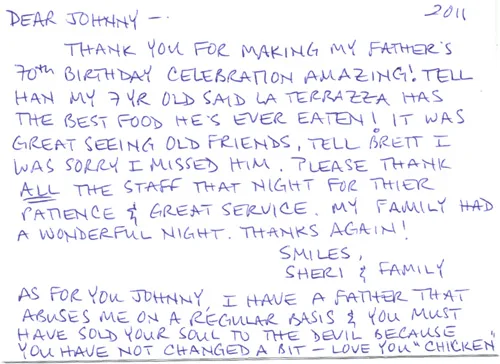 DEAR JOHNNY —. 2011
THANK YOU FOR MAKING MY FATHER'S
70th BIRTHDAY CELEBRATION AMAZING! TELL
HAN MY 7 YR OLD SAID LA TERRAZZA HAS
THE BEST FOOD HE'S EVER EATEN! IT WAS
GREAT SEEING OLD FRIENDS, TELL BRETT I
WAS SORRY I MISSED HIM. PLEASE THANK
ALL THE STAFF THAT NIGHT FOR THIER
PATIENCE & GREAT SERVICE. MY FAMILY HAD
A WONDERFUL NIGHT. THANKS AGAIN!
SMILES,
SHERI & FAMILY
AS FOR YOU JOHNNY, I HAVE A FATHER THAT
ABUSES ME ON A REGULAR BASIS & YOU MUST
HAVE SOLD YOUR SOUL TO THE DEVIL BECAUSE
YOU HAVE NOT CHANGED A BIT - LOVE YOU "CHICKEN"